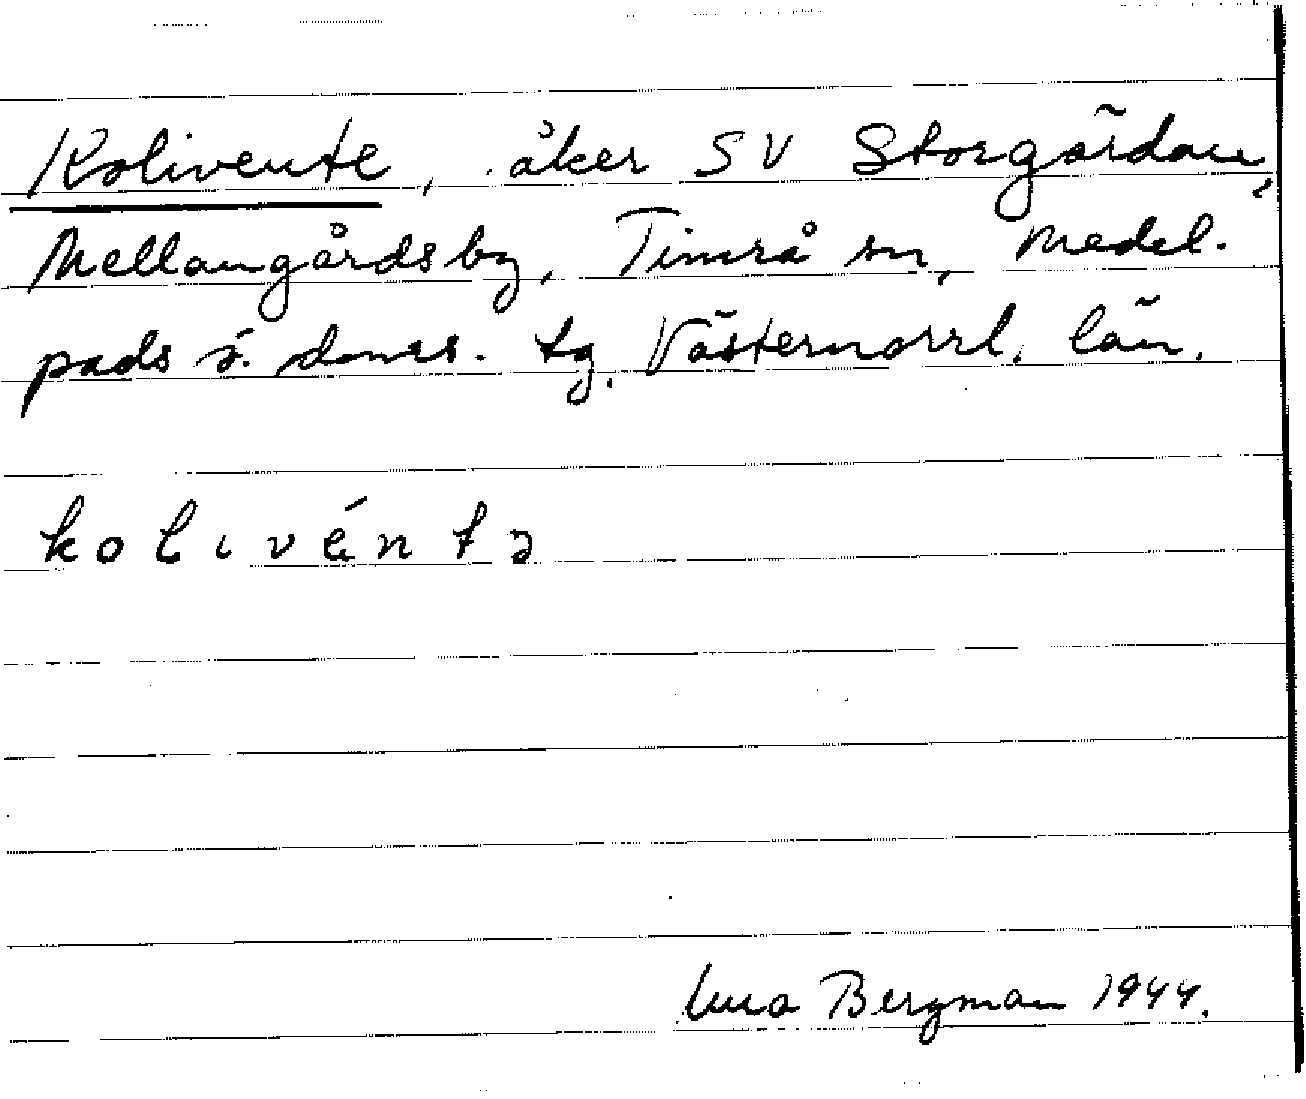 Kolivente, åker SV Storgården,
Mellangårdsby, Timrå sn, Medel-
pads v. doms. tg. Västernorrl. län.
kolivéntə
Bergman 1944.